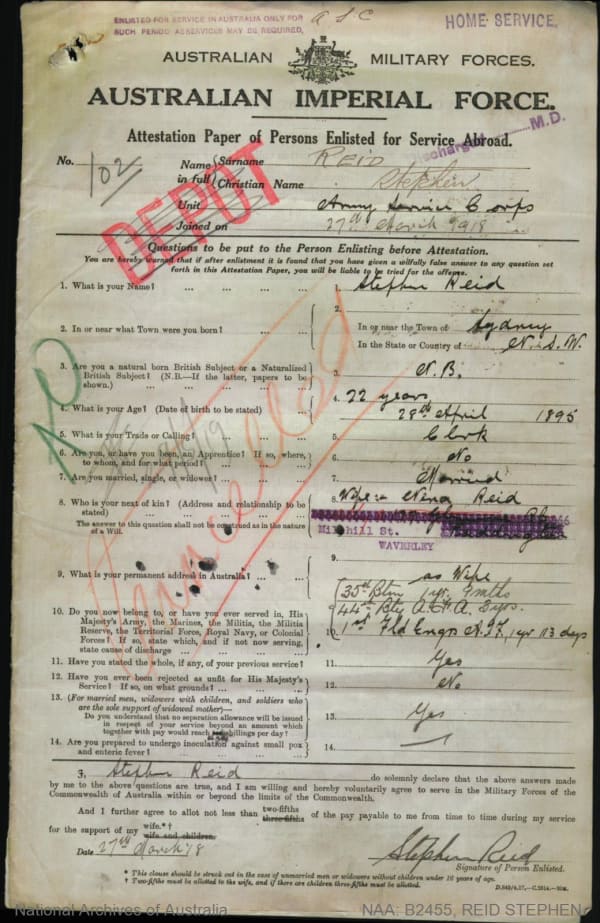 ENLISTED FOR SERVICE IN AUSTRALIA ONLY FOR
SUCH PERIOD AS SERVICES MAY BE REQUIRED,
A S C
HOME SERVICE.
AUSTRALIAN MILITARY FORCES.
AUSTRALIAN IMPERIAL FORCE.
Attestation Paper of Persons Enlisted for Service Abroad.
Discharged M.D.
No. 102
Name in full
Surname REID
Christian Name Stephen
Unit Army Service Corps
Joined on 27th March 1918
DEPOT
Questions to be put to the Person Enlisting before Attestation.
You are hereby warned that if after enlistment it is found that you have given a wilfully false answer to any question set
forth in this Attestation Paper, you will be liable to be tried for the offence.
1. What is your Name? ... ... ... 1. Stephen Reid
2. In or near what Town were you born? ... ... 2. In or near the Town of Sydney
In the State or Country of N.S.W.
3. Are you a natural born British Subject or a Naturalized
British Subject? (N.B.—If the latter, papers to be
shown.) ... ... ... ... 3. N.B.
4. What is your Age? (Date of birth to be stated) ... 4. 22 years
28th April 1895
5. What is your Trade or Calling? ... ... 5. Clerk
6. Are you, or have you been, an Apprentice? If so, where,
to whom, and for what period? ... ... 6. No
7. Are you married, single, or widower? ... ... 7. Married
8. Who is your next of kin? (Address and relationship to be
stated) ... ... ... 8. Wife: Nina Reid
The answer to this question shall not be construed as in the nature
of a Will.
Mill hill St.
WAVERLEY
Cancelled
9. What is your permanent address in Australia? ... ... 9. as Wife
10. Do you now belong to, or have you ever served in, His
Majesty's Army, the Marines, the Militia, the Militia
Reserve, the Territorial Force, Royal Navy, or Colonial
Forces? If so, state which, and if not now serving,
state cause of discharge ... ... ... 10.
35th Btn 1 yr. 9 mths
44th Bty A.F.A. 3 yrs.
1st Fld Engrs A.I.F. 1 yr 113 days
11. Have you stated the whole, if any, of your previous service? 11. Yes
12. Have you ever been rejected as unfit for His Majesty's
Service? If so, on what grounds? ... ... 12. No
13. (For married men, widowers with children, and soldiers who
are the sole support of widowed mother)—
Do you understand that no separation allowance will be issued
in respect of your service beyond an amount which
together with pay would reach shillings per day? ... 13. Yes
14. Are you prepared to undergo inoculation against small pox
and enteric fever? ... ... ... 14. —
I, Stephen Reid do solemnly declare that the above answers made
by me to the above questions are true, and I am willing and hereby voluntarily agree to serve in the Military Forces of the
Commonwealth of Australia within or beyond the limits of the Commonwealth.
And I further agree to allot not less than two-fifths three-fifths of the pay payable to me from time to time during my service
for the support of my wife.*† wife and children.
Date 27th March/18
Stephen Reid
Signature of Person Enlisted.
* This clause should be struck out in the case of unmarried men or widowers without children under 16 years of age.
† Two-fifths must be allotted to the wife, and if there are children three-fifths must be allotted.
National Archives of Australia
NAA: B2455, REID STEPHEN